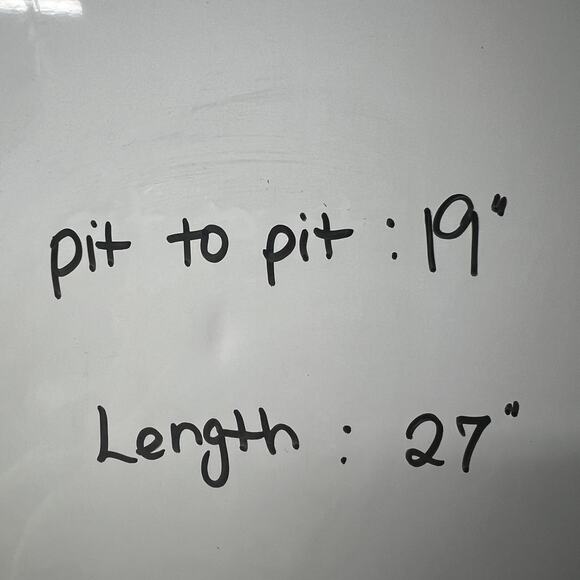 pit to pit : 19"
Length : 27"